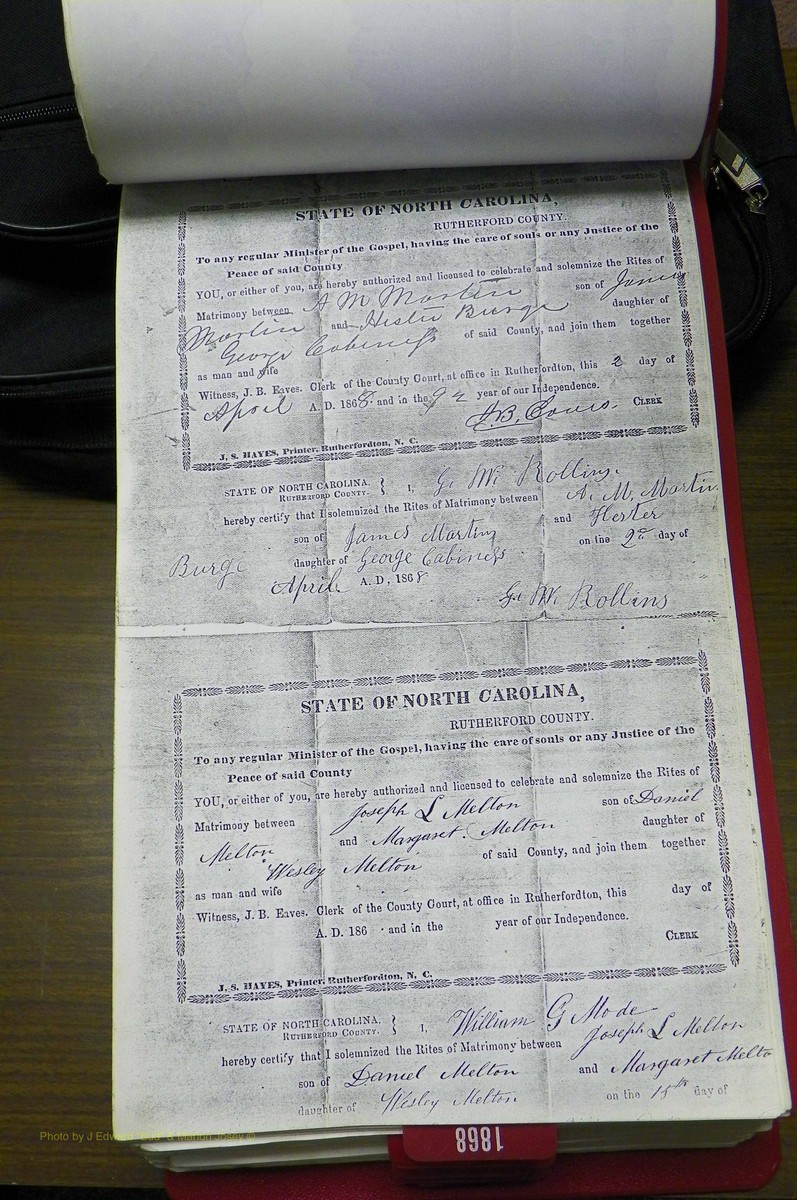 STATE OF NORTH CAROLINA,
RUTHERFORD COUNTY.
To any regular Minister of the Gospel, having the care of souls or any Justice of the
Peace of said County
YOU, or either of you, are hereby authorized and licensed to celebrate and solemnize the Rites of
Matrimony between A M Martin son of James
Martin and Hester Burge daughter of
George Cabiness of said County, and join them together
as man and wife
Witness, J. B. Eaves. Clerk of the County Court, at office in Rutherfordton, this 2 day of
April A. D. 1868. and in the 92 year of our Independence.
J. B. Eaves. CLERK
J. S. HAYES, Printer, Rutherfordton, N. C.
STATE OF NORTH CAROLINA.
RUTHERFORD COUNTY. } I, G. W. Rollins.
hereby certify that I solemnized the Rites of Matrimony between A. M. Martin.
son of James Martin and Herter
Burge daughter of George Cabiness on the 2nd day of
April A. D, 1868
G. W. Rollins
STATE OF NORTH CAROLINA,
RUTHERFORD COUNTY.
To any regular Minister of the Gospel, having the care of souls or any Justice of the
Peace of said County
YOU, or either of you, are hereby authorized and licensed to celebrate and solemnize the Rites of
Matrimony between Joseph L Melton son of Daniel
Melton and Margaret. Melton daughter of
Wesley Melton of said County, and join them together
as man and wife
Witness, J. B. Eaves. Clerk of the County Court, at office in Rutherfordton, this day of
A. D. 186 and in the year of our Independence.
CLERK
J. S. HAYES, Printer, Rutherfordton, N. C.
STATE OF NORTH CAROLINA.
RUTHERFORD COUNTY. } I, William G Mode
hereby certify that I solemnized the Rites of Matrimony between Joseph L Melton
son of Daniel Melton and Margaret Melto
daughter of Wesley Melton on the 15th day of
Photo by J Edward & Marion Josey ©
1868